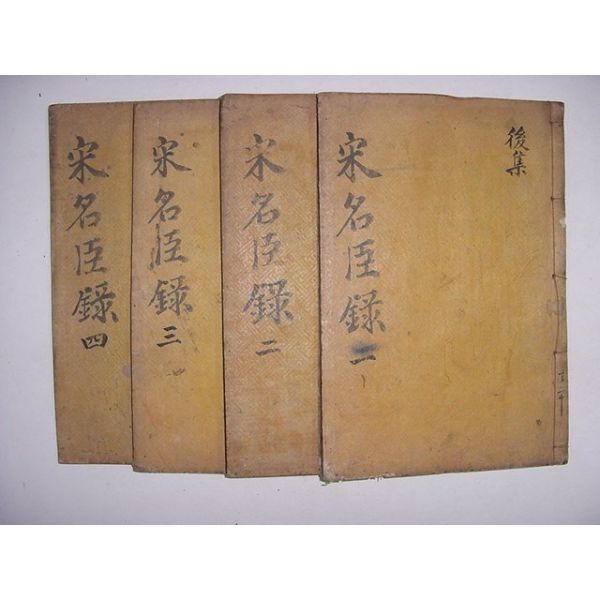 後集
宋名臣錄 一
宋名臣錄 二
宋名臣錄 三
宋名臣錄 四